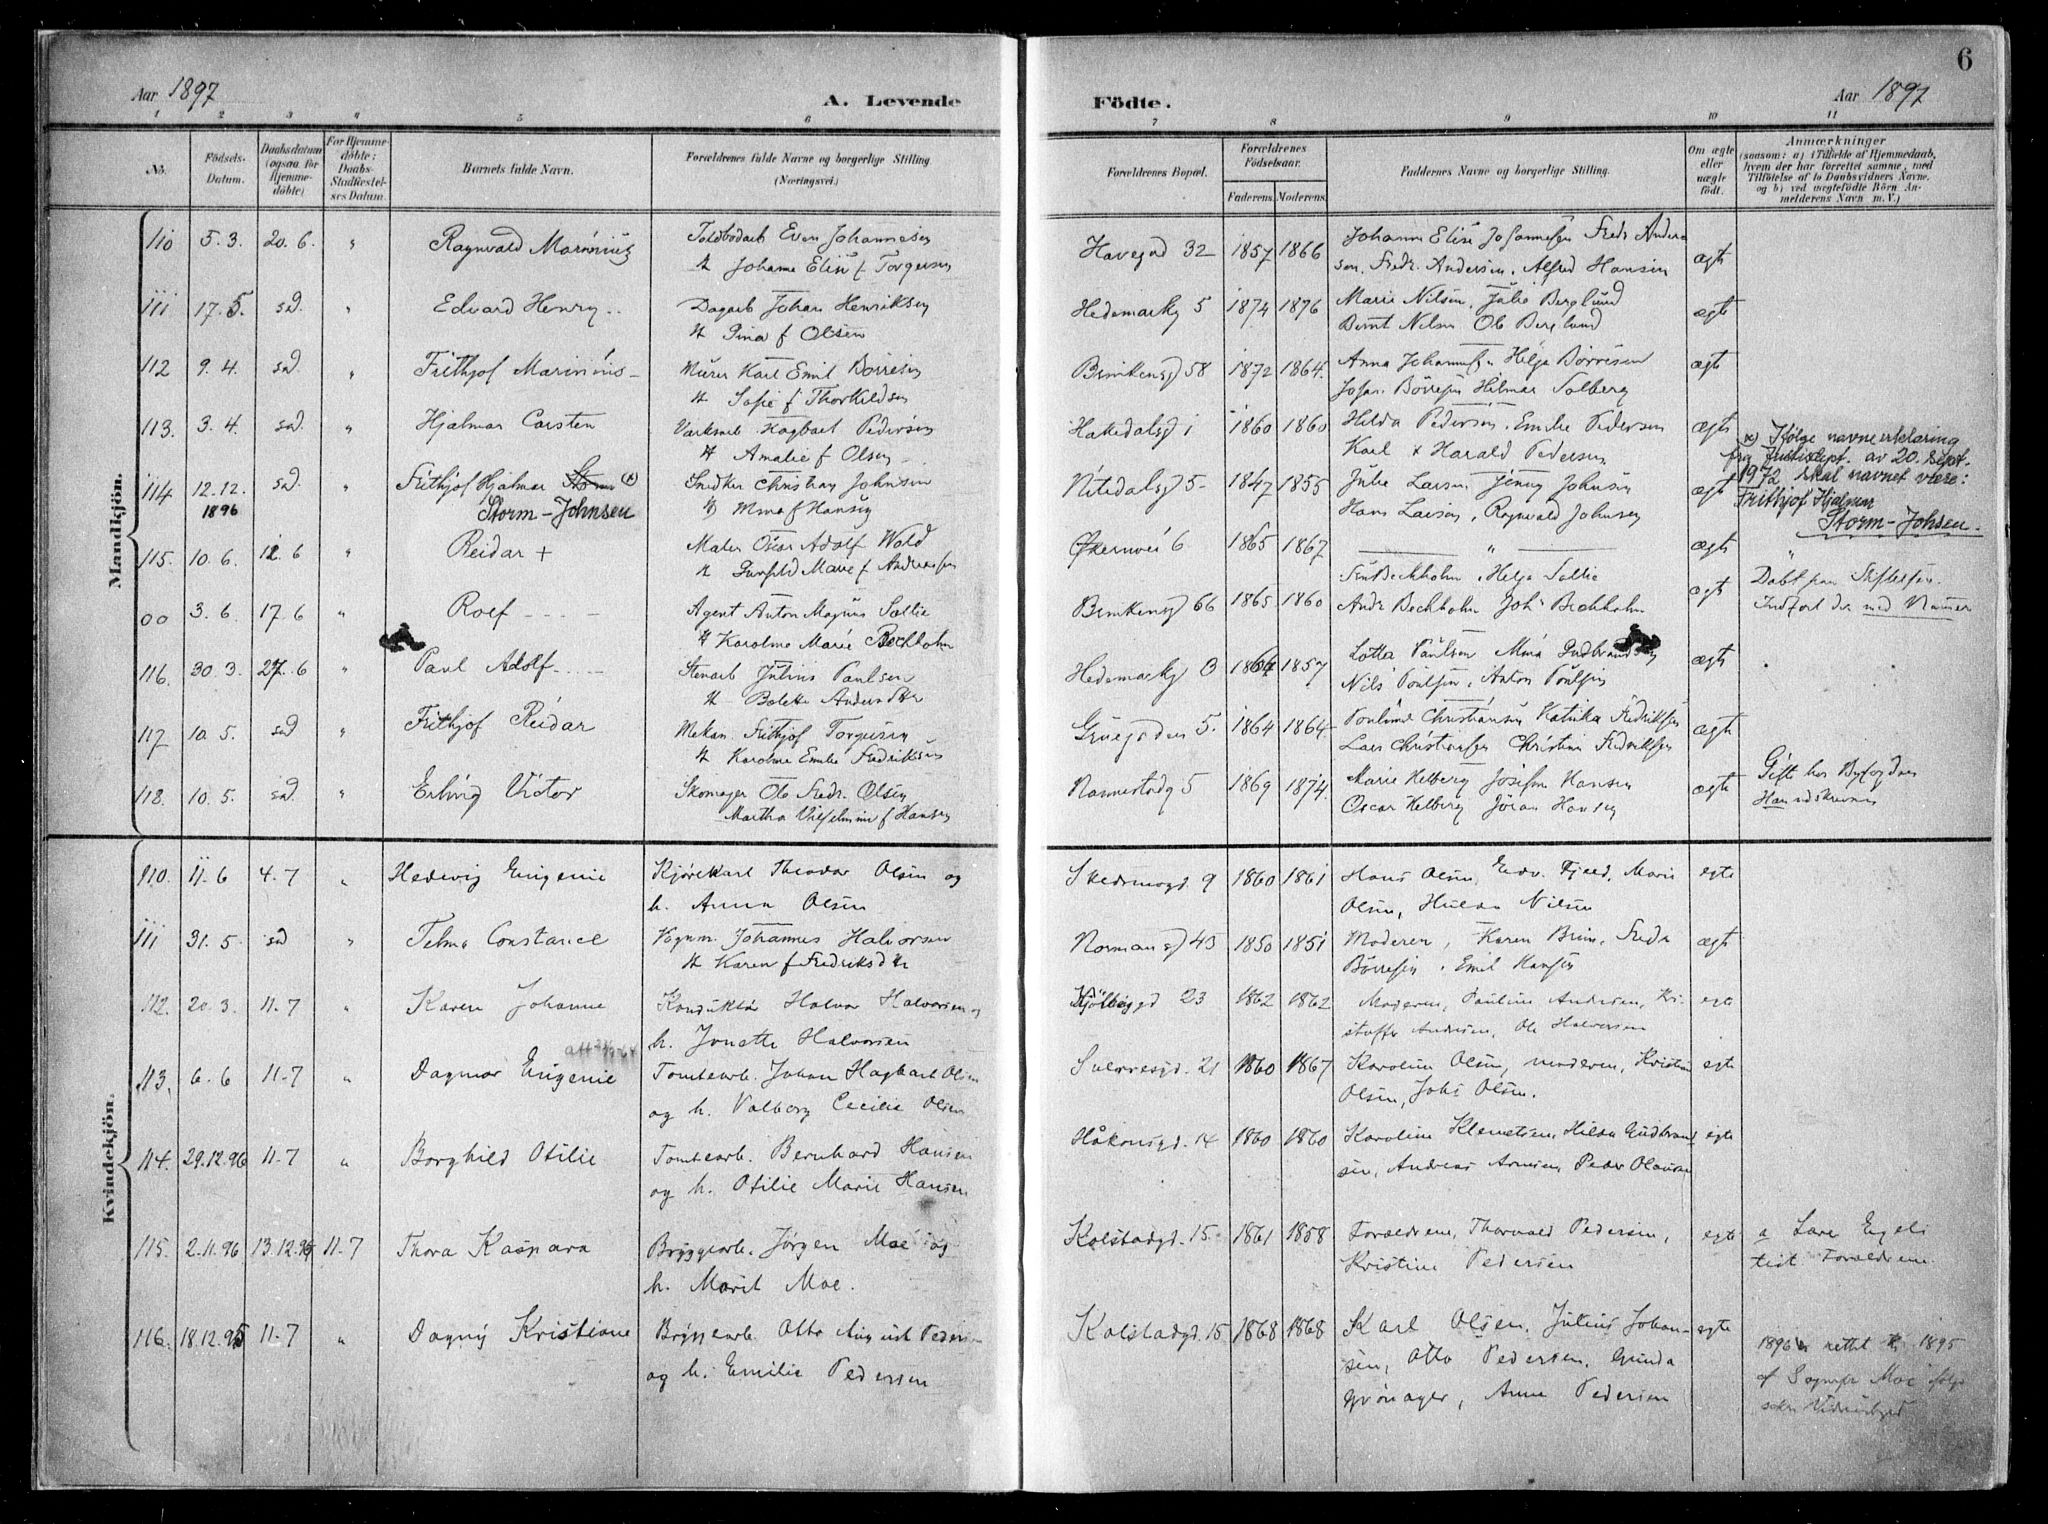 6
Aar 1897
A. Levende
Födte.
Aar 1897
1 2 3 4 5 6 7 8 9 10 11
No.
Födsels-Datum.
Daabsdatum (ogsaa for Hjemmedöbte)
For Hjemmedöbte: Daabs-Stadfæstelses Datum.
Barnets fulde Navn.
Forældrenes fulde Navne og borgerlige Stilling (Næringsvei.)
Forældrenes Bopæl.
Forældrenes Födselsaar.
Faderens. Moderens.
Faddernes Navne og borgerlige Stilling.
Om ægte eller uægte födt.
Anmærkninger
(saasom: a) i Tilfælde af Hjemmedaab,
hvem der har forrettet samme, med
Tilföielse af to Daabsvidners Navne,
og b) ved uægtefödte Börn Anmelderens Navn m. V.)
Mandkjön.
110 5.3. 20.6. " Ragnvald Marinius
Toldbodarb Even Johannesen
H Johanne Elise f Torgersen
Havegad 32 1857 1866
Johanne Elise Johannesen Fredr Andersen. Fredr. Andersen. Alfred Hansen
ægte
111 17.5. sad. " Edvard Henry
Dagarb Johan Henriksen
H Pina f Olsen
Hedemarkg 5 1874 1876
Marie Nilsen. Julie Berglund
Bernt Nilsen Ole Berglund
ægte
112 9.4. sad " Frithjof Marinius
Murer Karl Emil Børresen
H Sofie f Thorkildsen
Brinkensgd 58 1872 1864.
Anna Johannesen Helga Børresen
Johan Børresen Hilmar Solberg
ægte
113. 3.4. sad. " Hjalmar Carsten
Værksarb Hagbart Pedersen
H Amalie f Olsen
Hakedalsgd 1 1860 1860
Hilda Pedersen. Emilie Pedersen
Karl + Harald Pedersen
ægte
114 12.12. 1896 sad " Frithjof Hjalmar Storm x)
Storm-Johnsen
Snedker Christian Johnsen
H Mina f Hansen
Nitedalsgd 5 1847 1855
Julie Larsen Jenny Johnsen
Hans Larsen. Ragnvald Johnsen
ægte
x) Ifølge navneerklæring
fra Justisdept. av 20. sept.
1972 skal navnet være:
Frithjof Hjalmar
Storm-Johsen
115. 10.6. 12.6 " Reidar +
Maler Oscar Adolf Wold
H Gunhild Marie f Andreassen
Økernvei 6 1865 1867
"
ægte "
00 3.6 17.6 " Rolf
Agent Anton Magnus Sollie
H Karoline Marie Bechholm
Brinkensgd 66 1865. 1860
Bechholm. Helga Sollie
Andr Bechholm Johs Bechholm
ægte
Døbt paa Stiftelsen.
Indført der med Numer
116. 30.3. 27.6 " Paul Adolf
Stenarb Julius Paulsen
H Bolette Andersdtr
Hedemarkg 3 1864 1857
Lotta Paulsen Mina Gudbrandsen
Nils Poulsen. Anton Poulsen
ægte
117 10.5. sad " Frithjof Reidar
Mekan. Frithjof Torgersen
H Karoline Emilie Fredriksen
Gruegaden 5. 1864 1864
Pauline Christiansen Katinka Fredriksen
Lars Christiansen Christine Fredriksen
ægte
118. 10.5. sad. " Erling Victor
Skomager Ole Fredr. Olsen
Martha Vilhelmine f Hansen
Nannestadg 5 1869 1874.
Marie Helberg Josefine Hansen
Oscar Helberg Jöran Hansen
ægte
Gift hos Byfogden
Kvindekjön.
110. 11.6 4.7 " Hedevig Eugenie
Kjørekarl Theodor Olsen og
h. Anna Olsen
Skedsmogd. 9 1860 1861
Hans Olsen, Edv. Fjeld, Marie
Olsen, Hulda Nilsen
egte
111 31.5. sad " Telma Constance
Vognm. Johannes Halvorsen
H Karen f Fredriksdtr
Normansgd 43 1850 1851
Moderen, Karen Brun. Freda
Börresen. Emil Hansen
ægte
112. 20.3. 11.7 " Karen Johanne
Konduktør Halvor Halvorsen og
h. Jonette Halvorsen
Kjølberggd 23 1862 1862
Moderen, Pauline Andersen, Kristoffer Andersen, Ole Halvorsen
egte
113. 6.6 11.7 " Dagmar Eugenie
Tomtearb. Johan Hagbart Olsen
og h. Valborg Cecilie Olsen
Sverresgd. 21 1860 1867
Karoline Olsen, moderen, Kristian
Olsen, Johs Olsen.
egte
114. 29.12.96 11.7 " Borghild Otilie
Tomtearb. Bernhard Hansen
og h. Otilie Marie Hansen
Håkonsgd. 14 1860 1860
Karoline Klemetsen, Hilda Gudbrandsen, Andreas Arnesen, Peder Olausen
egte
115. 2.11.96 13.12.96 11.7 Thora Kaspara
Bryggearb. Jørgen Moe og
h. Marit Moe.
Kolstadgd. 15. 1861 1858
Forældrene, Thorvald Pedersen,
Kristine Pedersen
egte
a Lars Engel
tist. Forældrene.
116. 18.12.95 11.7 " Dagny Kristiane
Bryggearb. Otto August Pedersen
og h. Emilie Pedersen
Kolstadgd. 15 1868 1868
Karl Olsen, Julius Johansen, Otto Pedersen, Gunda
Grönager, Anne Pedersen
egte
1896 er rettet til 1895
af Sognepr Moe ifølge